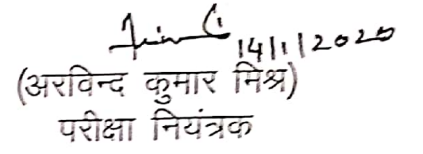 14/1/2020
(अरविन्द कुमार मिश्र)
परीक्षा नियंत्रक